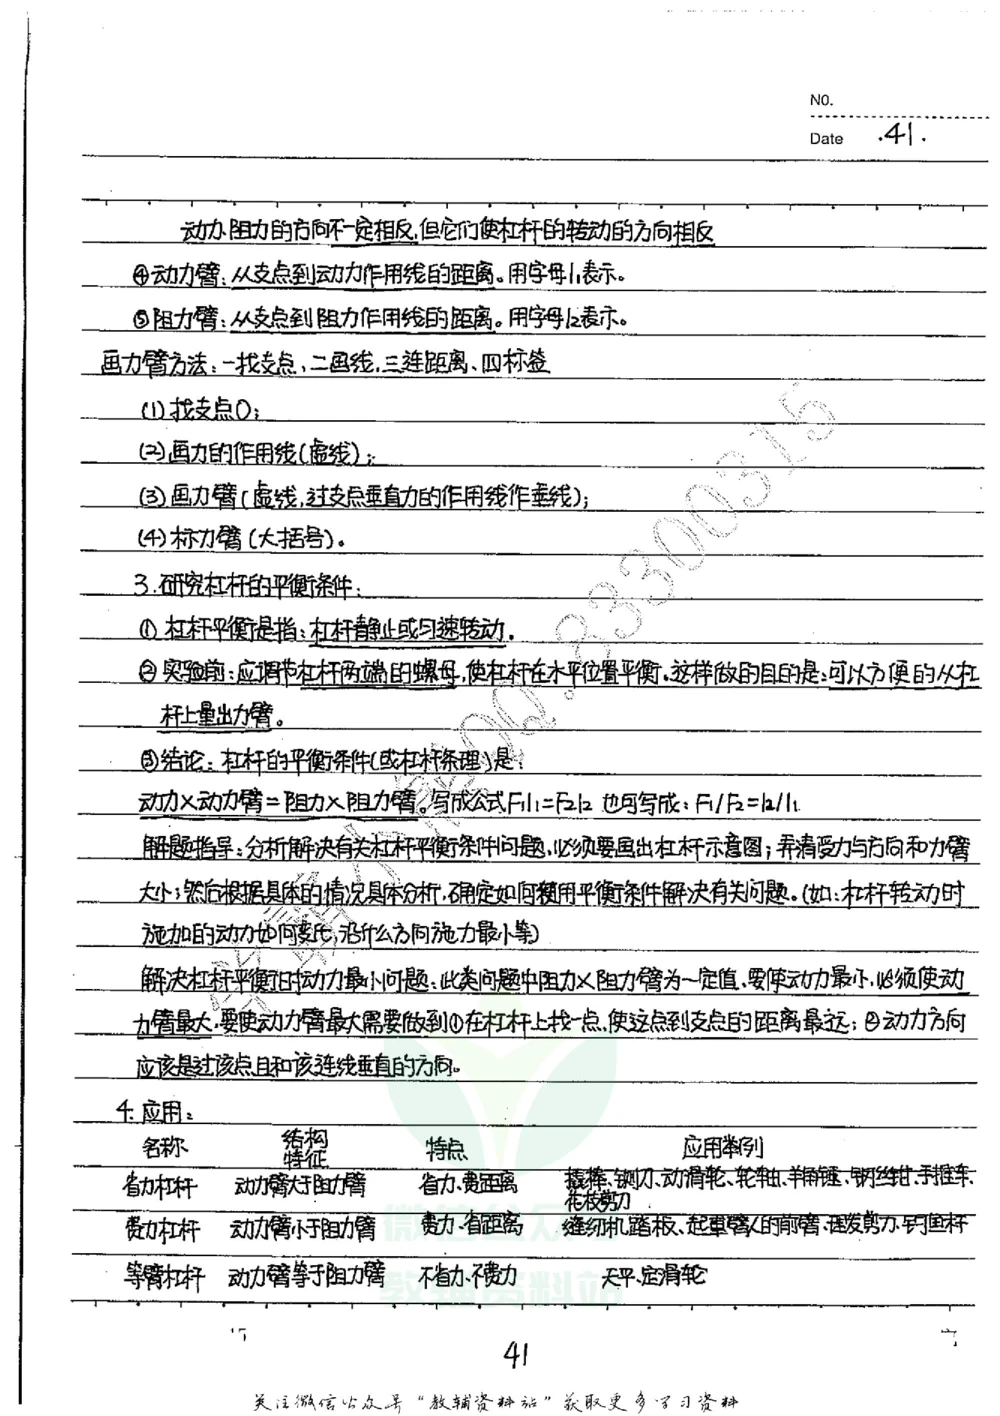 NO.
Date .41.
动力、阻力的方向不一定相反,但它们使杠杆的转动的方向相反
④动力臂:从支点到动力作用线的距离。用字母l1表示。
⑤阻力臂:从支点到阻力作用线的距离。用字母l2表示。
画力臂方法:一找支点、二画线、三连距离、四标签
(1)找支点O;
(2)画力的作用线(虚线);
(3)画力臂(虚线,过支点垂直力的作用线作垂线);
(4)标力臂(大括号)。
3.研究杠杆的平衡条件:
①杠杆平衡是指:杠杆静止或匀速转动。
②实验前:应调节杠杆两端的螺母,使杠杆在水平位置平衡。这样做的目的是:可以方便的从杠
杆上量出力臂。
③结论:杠杆的平衡条件(或杠杆条理)是:
动力×动力臂=阻力×阻力臂。写成公式F1l1=F2l2 也可写成:F1/F2=l2/l1
解题指导:分析解决有关杠杆平衡条件问题,必须要画出杠杆示意图;弄清受力与方向和力臂
大小;然后根据具体的情况具体分析,确定如何使用平衡条件解决有关问题。(如:杠杆转动时
施加的动力如何变化,沿什么方向施力最小等)
解决杠杆平衡时动力最小问题:此类问题中阻力×阻力臂为一定值,要使动力最小,必须使动
力臂最大,要使动力臂最大需要做到①在杠杆上找一点,使这点到支点的距离最远;②动力方向
应该是过该点且和该连线垂直的方向。
4.应用:
名称 结构特征 特点 应用举例
省力杠杆 动力臂大于阻力臂 省力、费距离 撬棒、铡刀、动滑轮、轮轴、羊角锤、钢丝钳、手推车、
花枝剪刀
费力杠杆 动力臂小于阻力臂 费力、省距离 缝纫机踏板、起重臂人的前臂、理发剪刀、钓鱼杆
等臂杠杆 动力臂等于阻力臂 不省力、不费力 天平、定滑轮
41
关注微信公众号“教辅资料站”获取更多学习资料
微信公众号
教辅资料站